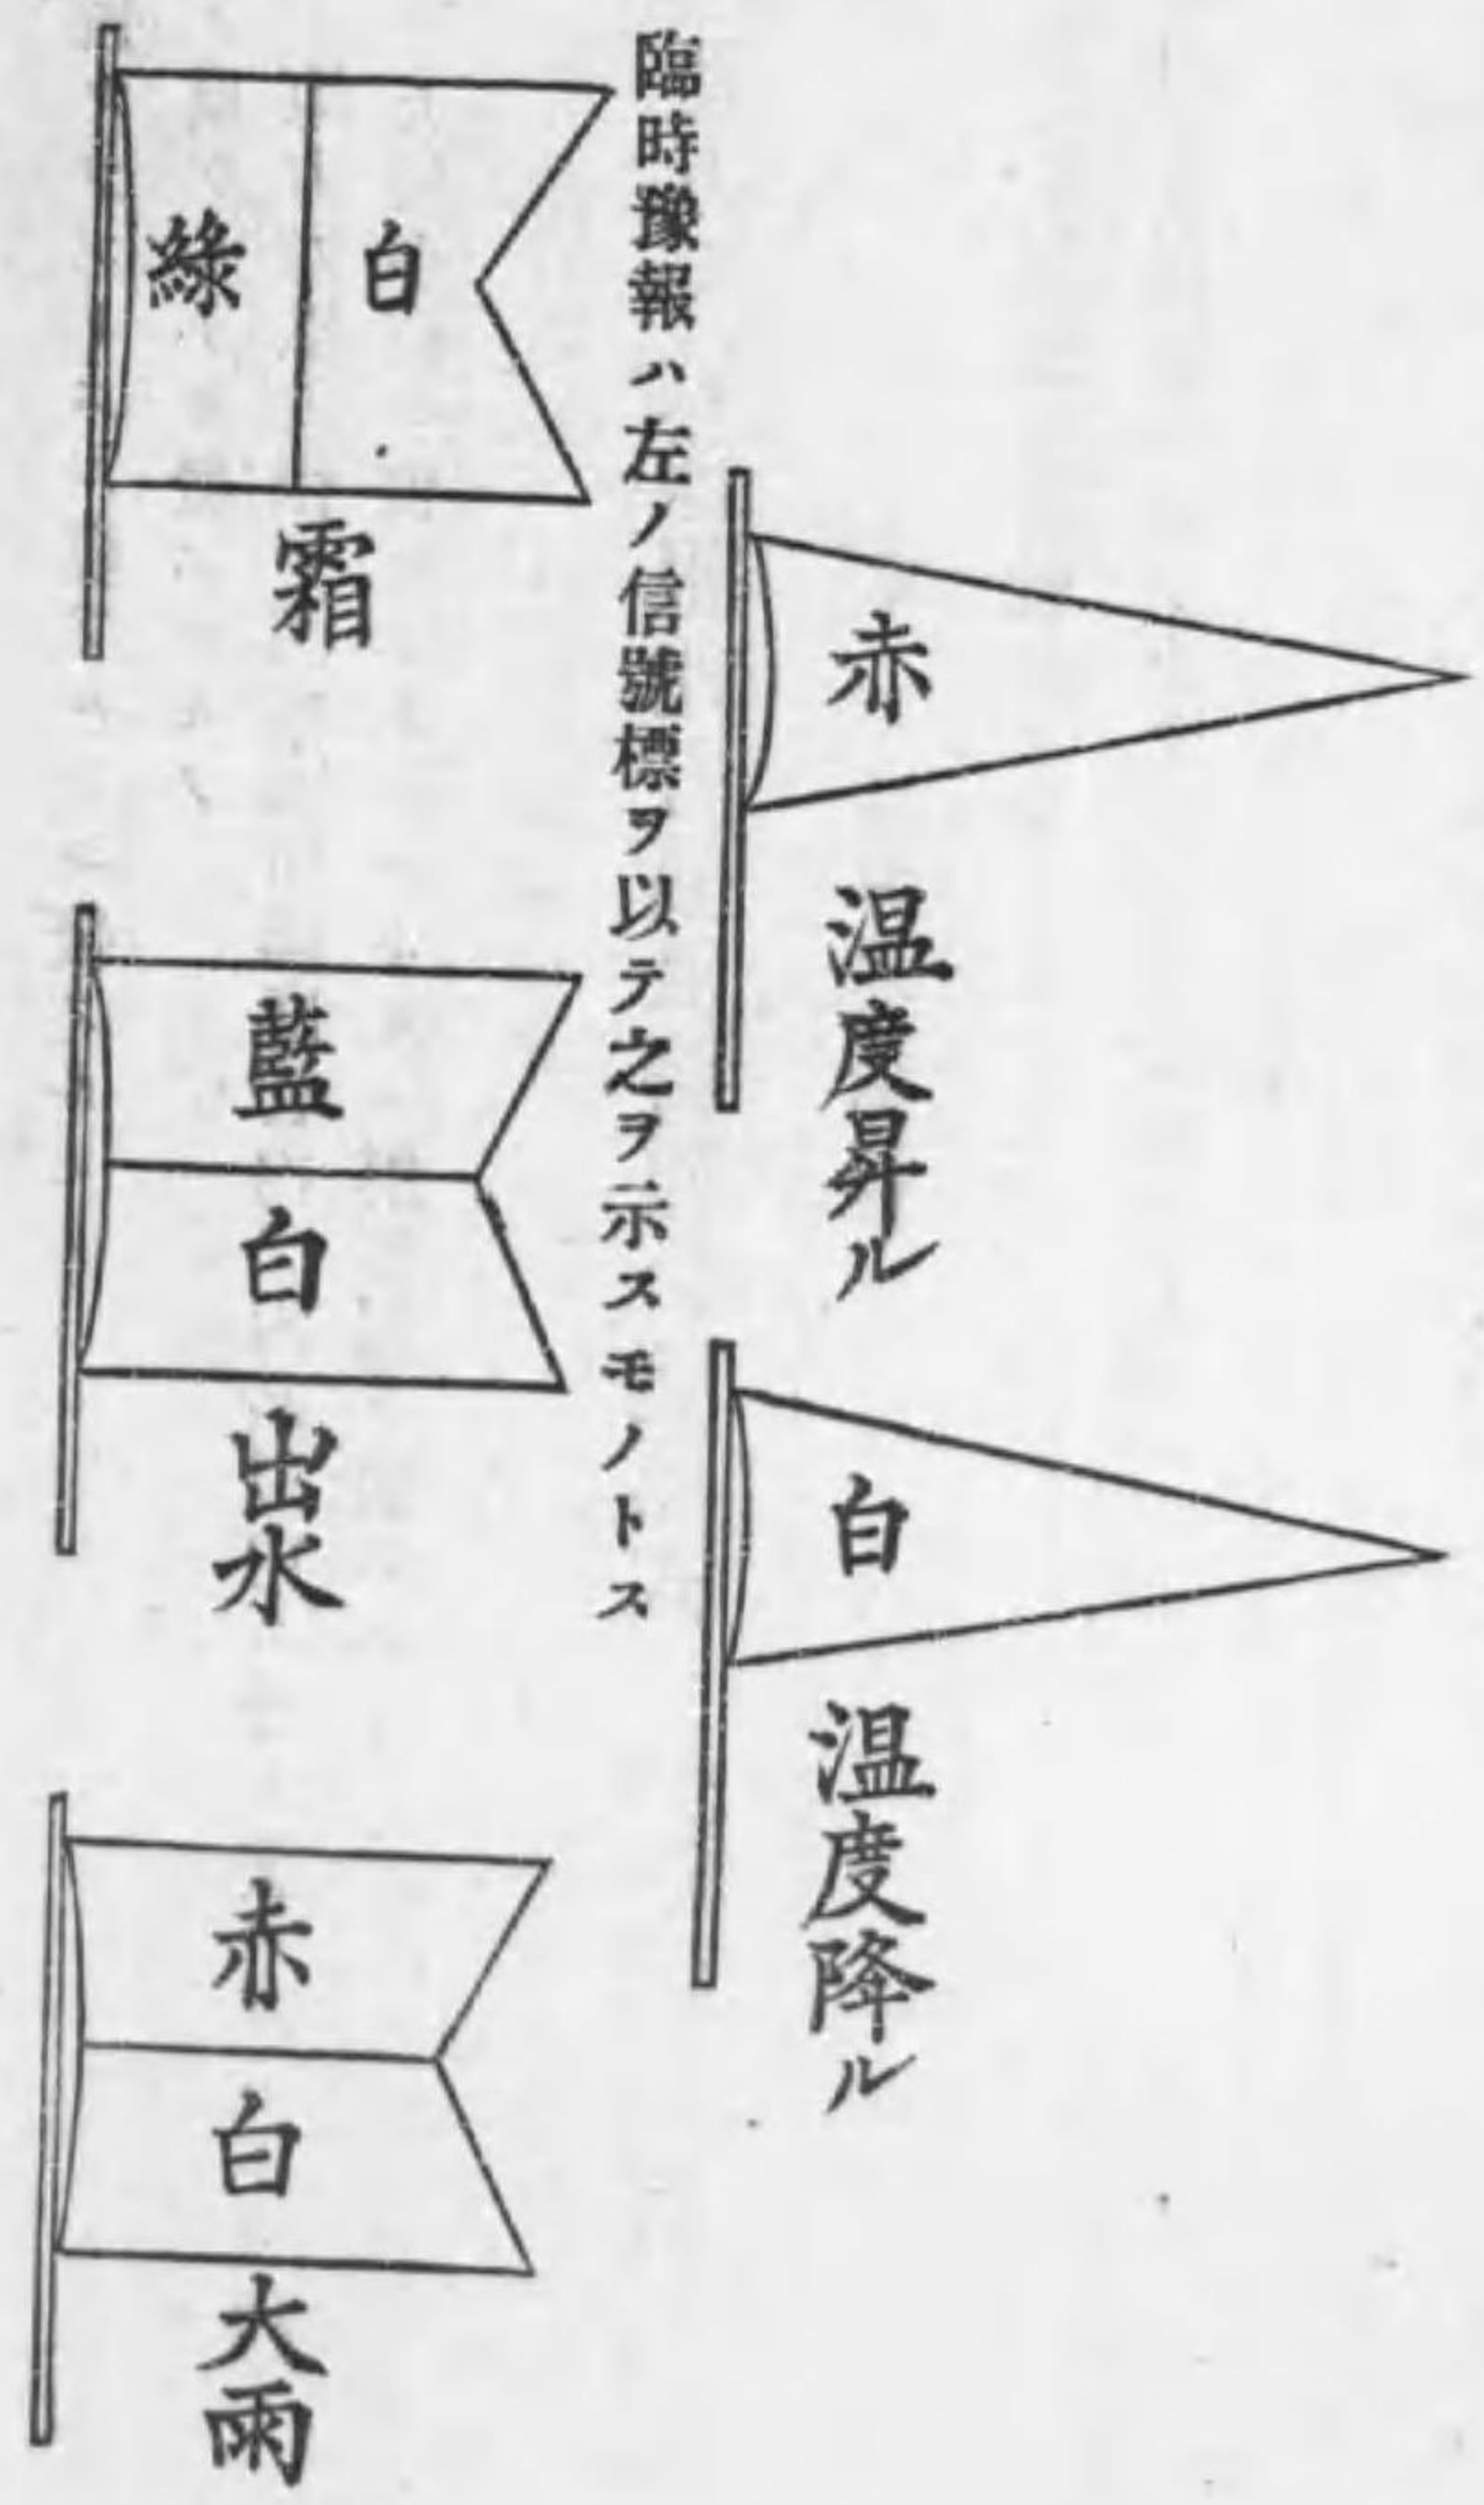 赤
温度昇ル
白
温度降ル
臨時豫報ハ左ノ信號標ヲ以テ之ヲ示スモノトス
綠
白
霜
藍
白
出水
赤
白
大雨